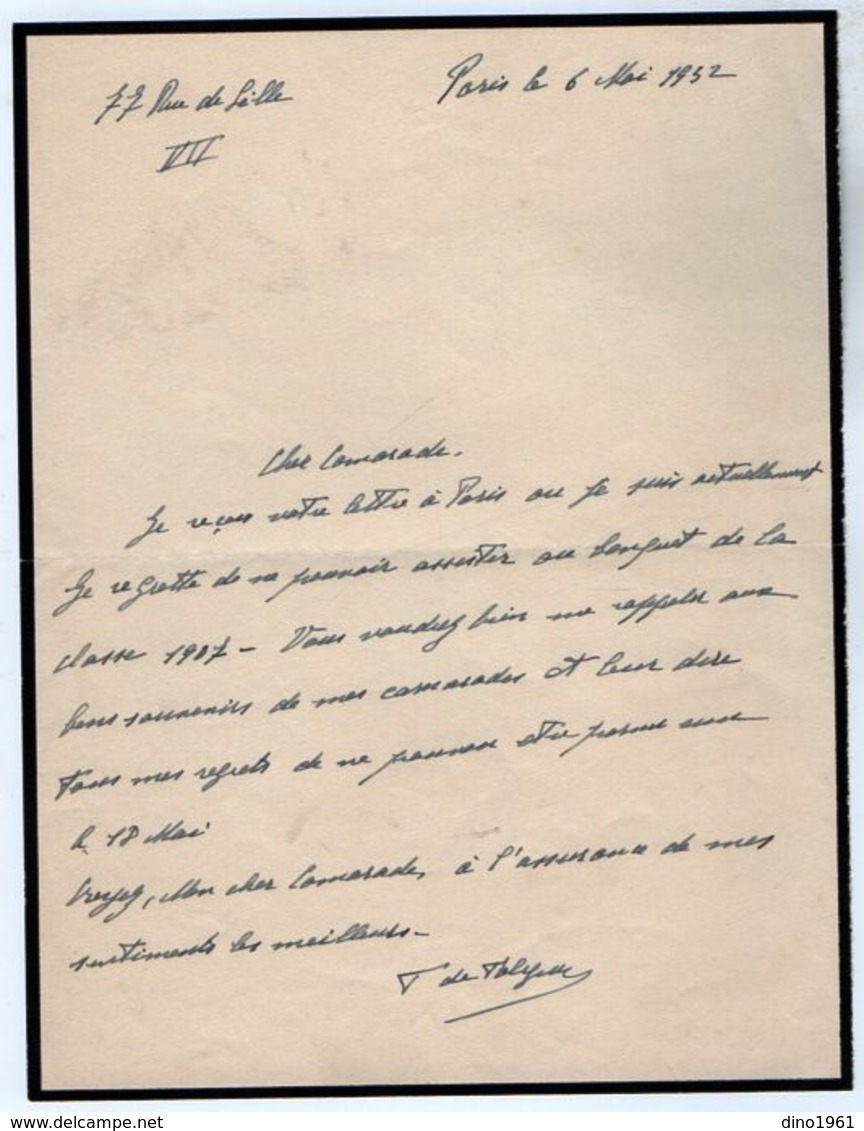 77 Rue de Lille
VII
Paris le 6 Mai 1952
Cher Camarade.
Je reçois votre lettre à Paris ou je suis actuellement
Je regrette de ne pouvoir assister au banquet de la
classe 1907 - Vous voudrez bien me rappeler aux
bons souvenirs de mes camarades et leur dire
tous mes regrets de ne pouvoir être parmi eux
le 18 Mai
Croyez, Mon cher Camarade, à l'assurance de mes
sentiments les meilleurs -
de
dino1961
www.delcampe.net